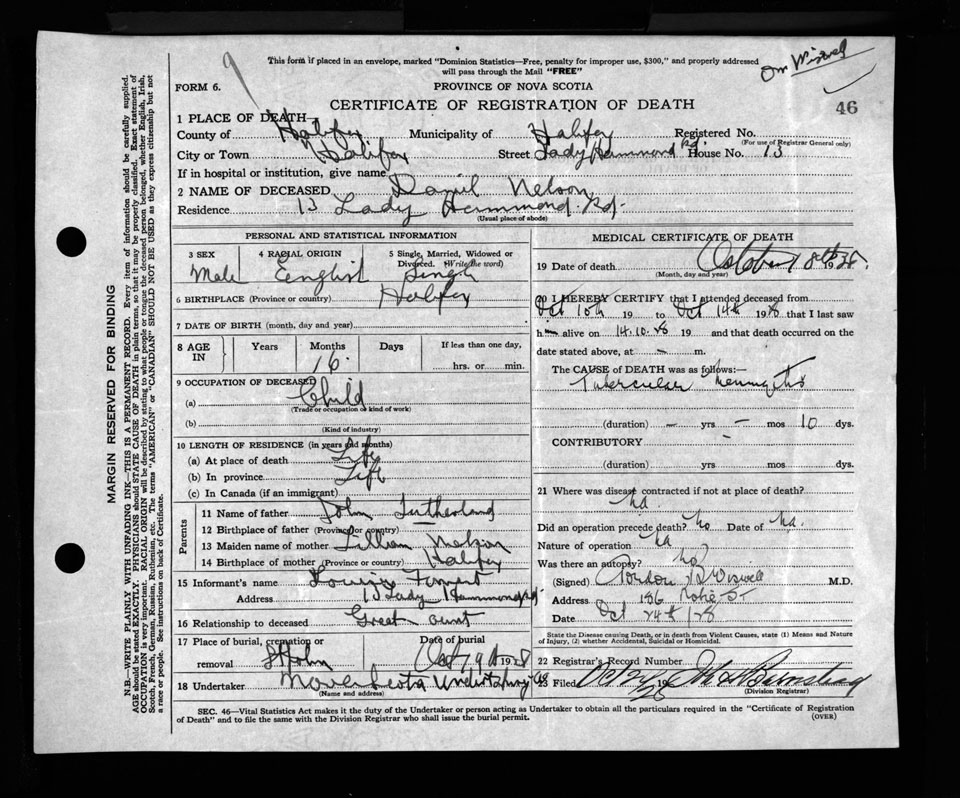 9
This form if placed in an envelope, marked "Dominion Statistics—Free, penalty for improper use, $300," and properly addressed
will pass through the Mail "FREE"
FORM 6.
PROVINCE OF NOVA SCOTIA
CERTIFICATE OF REGISTRATION OF DEATH
46
1 PLACE OF DEATH
County of Halifax Municipality of Halifax Registered No.
(For use of Registrar General only)
City or Town Halifax Street Lady Hammond Rd. House No. 13
If in hospital or institution, give name
2 NAME OF DECEASED Daniel Nelson
Residence 13 Lady Hammond Rd.
(Usual place of abode)
PERSONAL AND STATISTICAL INFORMATION
3 SEX 4 RACIAL ORIGIN 5 Single, Married, Widowed or
Divorced. (Write the word)
Male English Single
6 BIRTHPLACE (Province or country) Halifax
7 DATE OF BIRTH (month, day and year)
8 AGE IN Years Months Days If less than one day,
16 hrs. or min.
9 OCCUPATION OF DECEASED
(a) Child
(Trade or occupation or kind of work)
(b)
(Kind of industry)
10 LENGTH OF RESIDENCE (in years and months)
(a) At place of death Life
(b) In province Life
(c) In Canada (if an immigrant)
Parents
11 Name of father John Sutherland
12 Birthplace of father (Province or country)
13 Maiden name of mother Lillian Nelson
14 Birthplace of mother (Province or country) Halifax
15 Informant's name Louise
Address 13 Lady Hammond Rd.
16 Relationship to deceased Great aunt
17 Place of burial, cremation or Date of burial
removal St John Oct 19th 1928
18 Undertaker Nova Scotia Undertaking Co
(Name and address)
MEDICAL CERTIFICATE OF DEATH
19 Date of death October 18th 1928.
(Month, day and year)
20 I HEREBY CERTIFY that I attended deceased from
Oct 10th 19 to Oct 14th 1928 that I last saw
h alive on 14.10.28 19 and that death occurred on the
date stated above, at — m.
The CAUSE of DEATH was as follows:—
Tubercular Meningitis
(duration) — yrs — mos 10 dys.
CONTRIBUTORY
(duration) yrs mos dys.
21 Where was disease contracted if not at place of death?
na.
Did an operation precede death? no Date of na.
Nature of operation na
Was there an autopsy? no
(Signed) Gordon B Wiswell M.D.
Address 186 Robie St
Date Oct 24th/28
State the Disease causing Death, or in death from Violent Causes, state (1) Means and Nature
of Injury, (2) whether Accidental, Suicidal or Homicidal.
22 Registrar's Record Number
23 Filed Oct 24 1928
(Division Registrar)
SEC. 46—Vital Statistics Act makes it the duty of the Undertaker or person acting as Undertaker to obtain all the particulars required in the "Certificate of Registration
of Death" and to file the same with the Division Registrar who shall issue the burial permit.
(OVER)
MARGIN RESERVED FOR BINDING
N.B.—WRITE PLAINLY WITH UNFADING INK—THIS IS A PERMANENT RECORD. Every item of information should be carefully supplied.
AGE should be stated EXACTLY. PHYSICIANS should STATE CAUSE OF DEATH in plain terms, so that it may be properly classified. Exact statement of
OCCUPATION is very important. RACIAL ORIGIN will be described by stating to what people or tongue the deceased person belonged, whether English, Irish,
Scotch, French, German, Russian, Ruthenian, etc. The terms "AMERICAN" or "CANADIAN" SHOULD NOT BE USED as they express citizenship but not
a race or people. See instructions on back of Certificate.